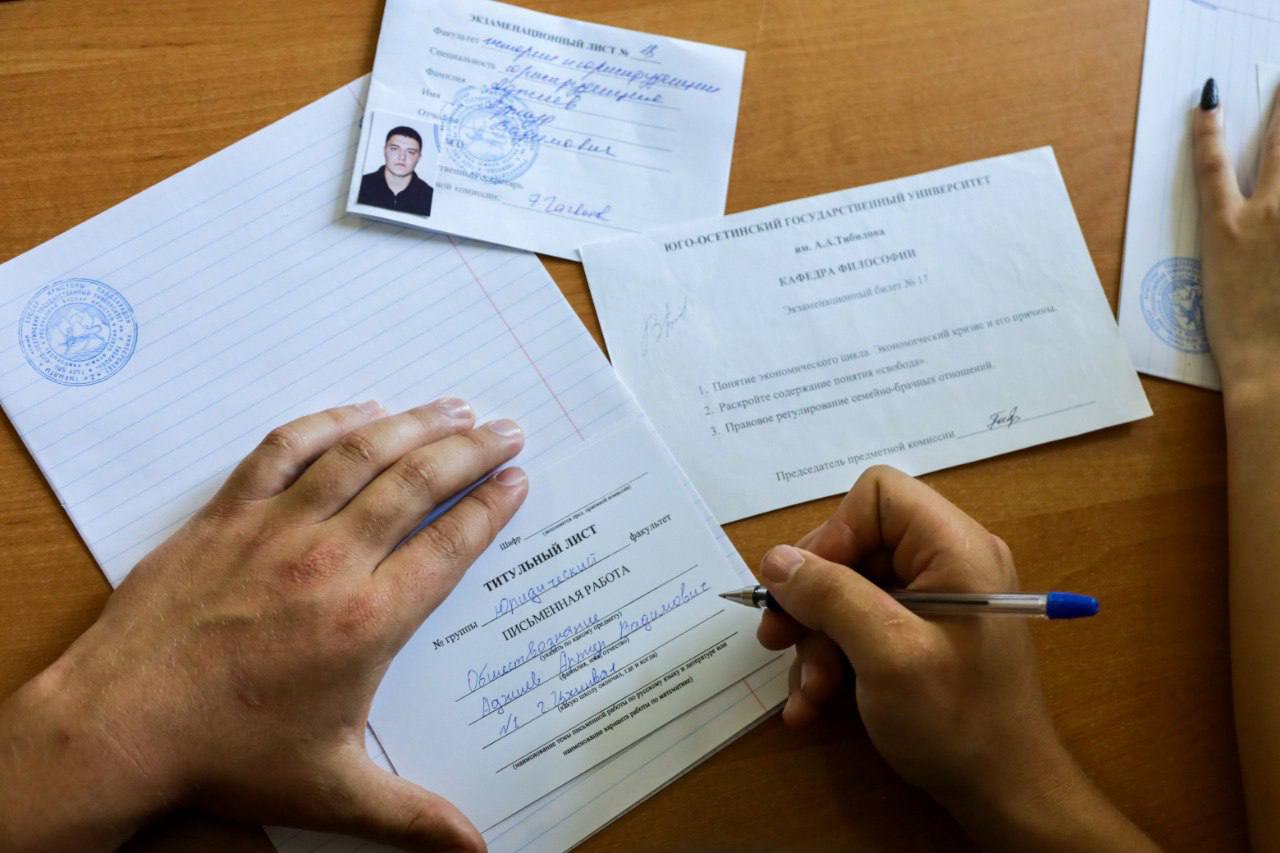 ЭКЗАМЕНАЦИОННЫЙ ЛИСТ №
Факультет истории и юриспруденции
Специальность юриспруденция
Фамилия Аджиев
Имя Артур
Вадимович
7 Гагвоев
ЮГО-ОСЕТИНСКИЙ ГОСУДАРСТВЕННЫЙ УНИВЕРСИТЕТ
им. А.А.Тибилова
КАФЕДРА ФИЛОСОФИИ
Экзаменационный билет № 17
1. Понятие экономического цикла. Экономический кризис и его причины.
2. Раскройте содержание понятия «свобода».
3. Правовое регулирование семейно-брачных отношений.
Председатель предметной комиссии
Шифр
(заполняется пред. приемной комиссии)
ТИТУЛЬНЫЙ ЛИСТ
юридический факультет
№ группы
ПИСЬМЕННАЯ РАБОТА
Обществознание
(указать по какому предмету)
Аджиев Артур Вадимович
(фамилия, имя, отчество)
№2 г Цхинвал
(какую школу окончил, где и когда)
(наименование темы письменной работы по русскому языку и литературе или
наименование варианта работы по математике)